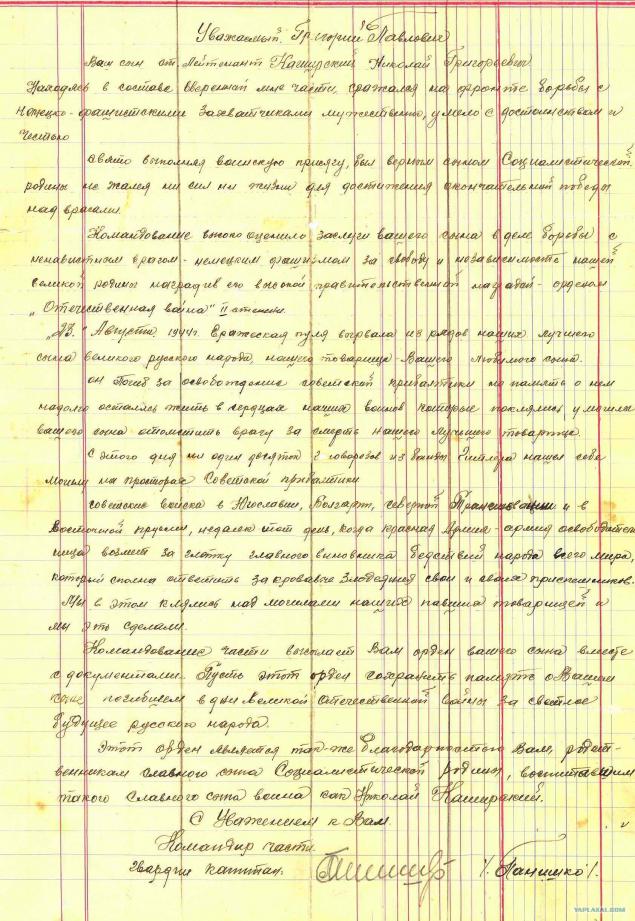 Уважаемый Григорий Павлович
Ваш сын ст. Лейтенант Каширский Николай Григорьевич
Находясь в составе вверенной мне части, сражался на фронте борьбы с
немецко-фашистскими захватчиками мужественно, умело с достоинством и
честью
свято выполняя воинскую присягу, был верным сыном Социалистической
родины не жалея ни сил ни жизни для достижения окончательной победы
над врагами.
Командование высоко оценило заслуги вашего сына в деле борьбы с
ненавистным врагом-немецким фашизмом за свободу и независимость нашей
великой родины наградив его высокой правительственной наградой-орденом
„Отечественная война" II степени.
„23." Августа 1944г. Вражеская пуля вырвала из рядов наших лучшего
сына великого русского народа, нашего товарища-Вашего любимого сына.
он Погиб за освобождение советской прибалтики но память о нем
надолго осталась жить в сердцах наших воинов которые поклялись у могилы
вашего сына отомстить врагу за смерть нашего лучшего товарища.
С этого дня ни один десяток из банды Гитлера нашы себе
могилу на просторах Советской прибалтики
советские войска в Югославии, Болгарии, северной и в
Восточной пруссии, недалек тот день, когда красная Армия-армия освободитель
ница возьмет за глотку главного виновника бедствий народа всего мира,
который сполна ответить за кровавые злодеяния свои и своих приспешников.
Мы в этом клялись над могилами наших павших товарищей и
мы это сделаем.
Командование части высылает Вам орден вашего сына вместе
с документами. Пусть этот орден сохранить память о Вашем
сыне погибшем в дни Великой отечественной войны за светлое
будущее русского народа.
Этот орден является так-же благодарностью Вам, родст-
венникам славного сына Социалистической родины, воспитавшим
такого славного сына воина как Николай Каширский.
С Уважением к Вам.
Командир части
Гвардии капитан. /. Панишко /.
YAPLAKAL.COM